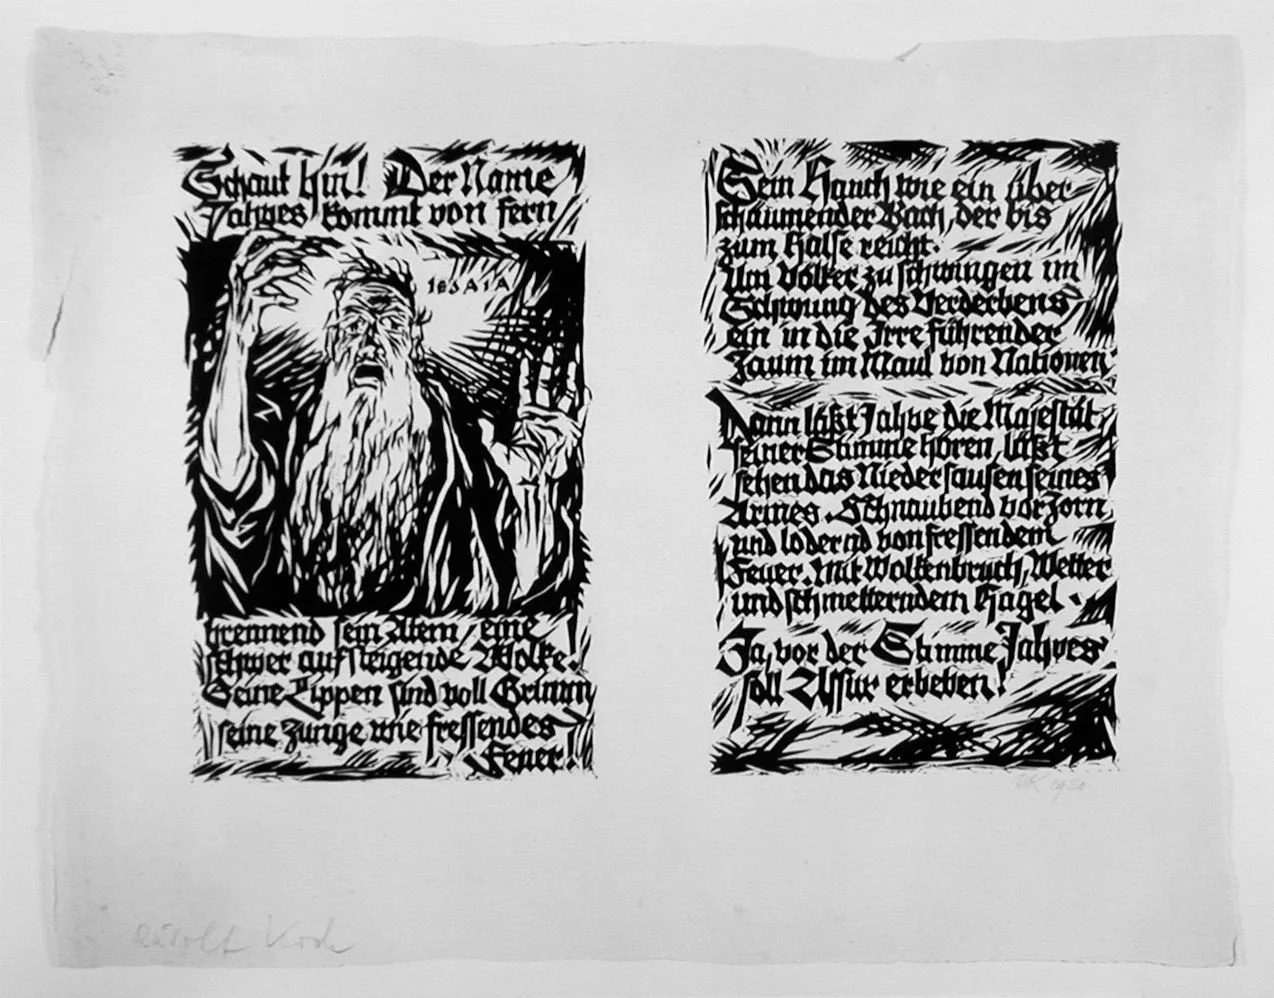 Schaut hin! Der Name
Jahwes kommt von fern
IESAIA
brennend sein Atem, eine
schwer aufsteigende Wolke!
Seine Lippen sind voll Grimm
seine Zunge wie fressendes
Feuer!
Sein Hauch wie ein über
schäumender Bach, der bis
zum Halse reicht.
Um Völker zu schwingen im
Schwung des Verderbens
ein in die Irre führender
Zaum im Maul von Nationen
Dann läßt Jahve die Majestät
seiner Stimme hören, läßt
sehen das Niedersausen seines
Armes. Schnaubend vor Zorn
und lodernd von fressendem
Feuer. Mit Wolkenbruch, Wetter
und schmetterndem Hagel.
Ja, vor der Stimme Jahves
soll Assur erbeben!
RK 1920
Rudolf Koch